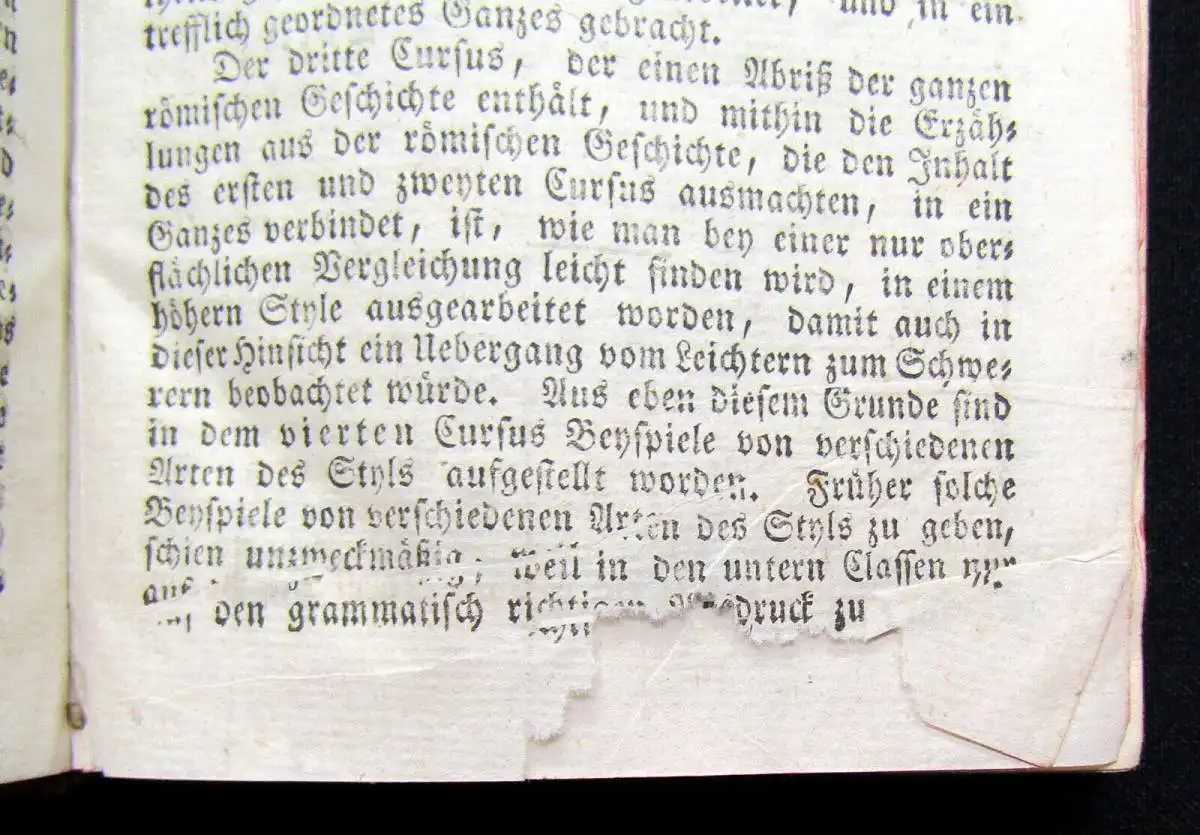 und in ein
trefflich geordnetes Ganzes gebracht.
Der dritte Cursus, der einen Abriß der ganzen
römischen Geschichte enthält, und mithin die Erzäh-
lungen aus der römischen Geschichte, die den Inhalt
des ersten und zweyten Cursus ausmachten, in ein
Ganzes verbindet, ist, wie man bey einer nur ober-
flächlichen Vergleichung leicht finden wird, in einem
höhern Style ausgearbeitet worden, damit auch in
dieser Hinsicht ein Uebergang vom Leichtern zum Schwe-
rern beobachtet würde. Aus eben diesem Grunde sind
in dem vierten Cursus Beyspiele von verschiedenen
Arten des Styls aufgestellt worden. Früher solche
Beyspiele von verschiedenen Arten des Styls zu geben,
schien unzweckmäßig, weil in den untern Classen nur
auf den grammatisch richtigen Ausdruck zu